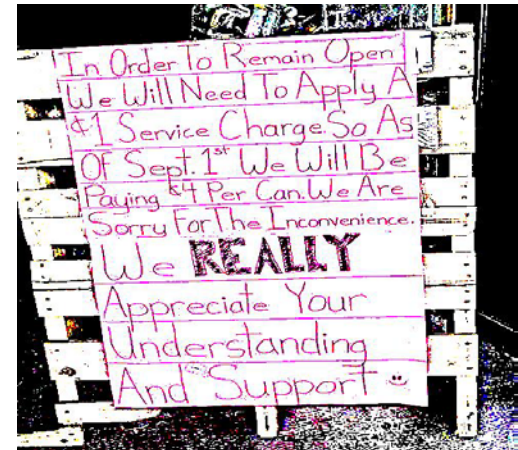 In Order To Remain Open
We Will Need To Apply A
¢1 Service Charge. So As
Of Sept. 1st We Will Be
Paying ¢4 Per Can. We Are
Sorry For The Inconvenience.
We REALLY
Appreciate Your
Understanding
And Support